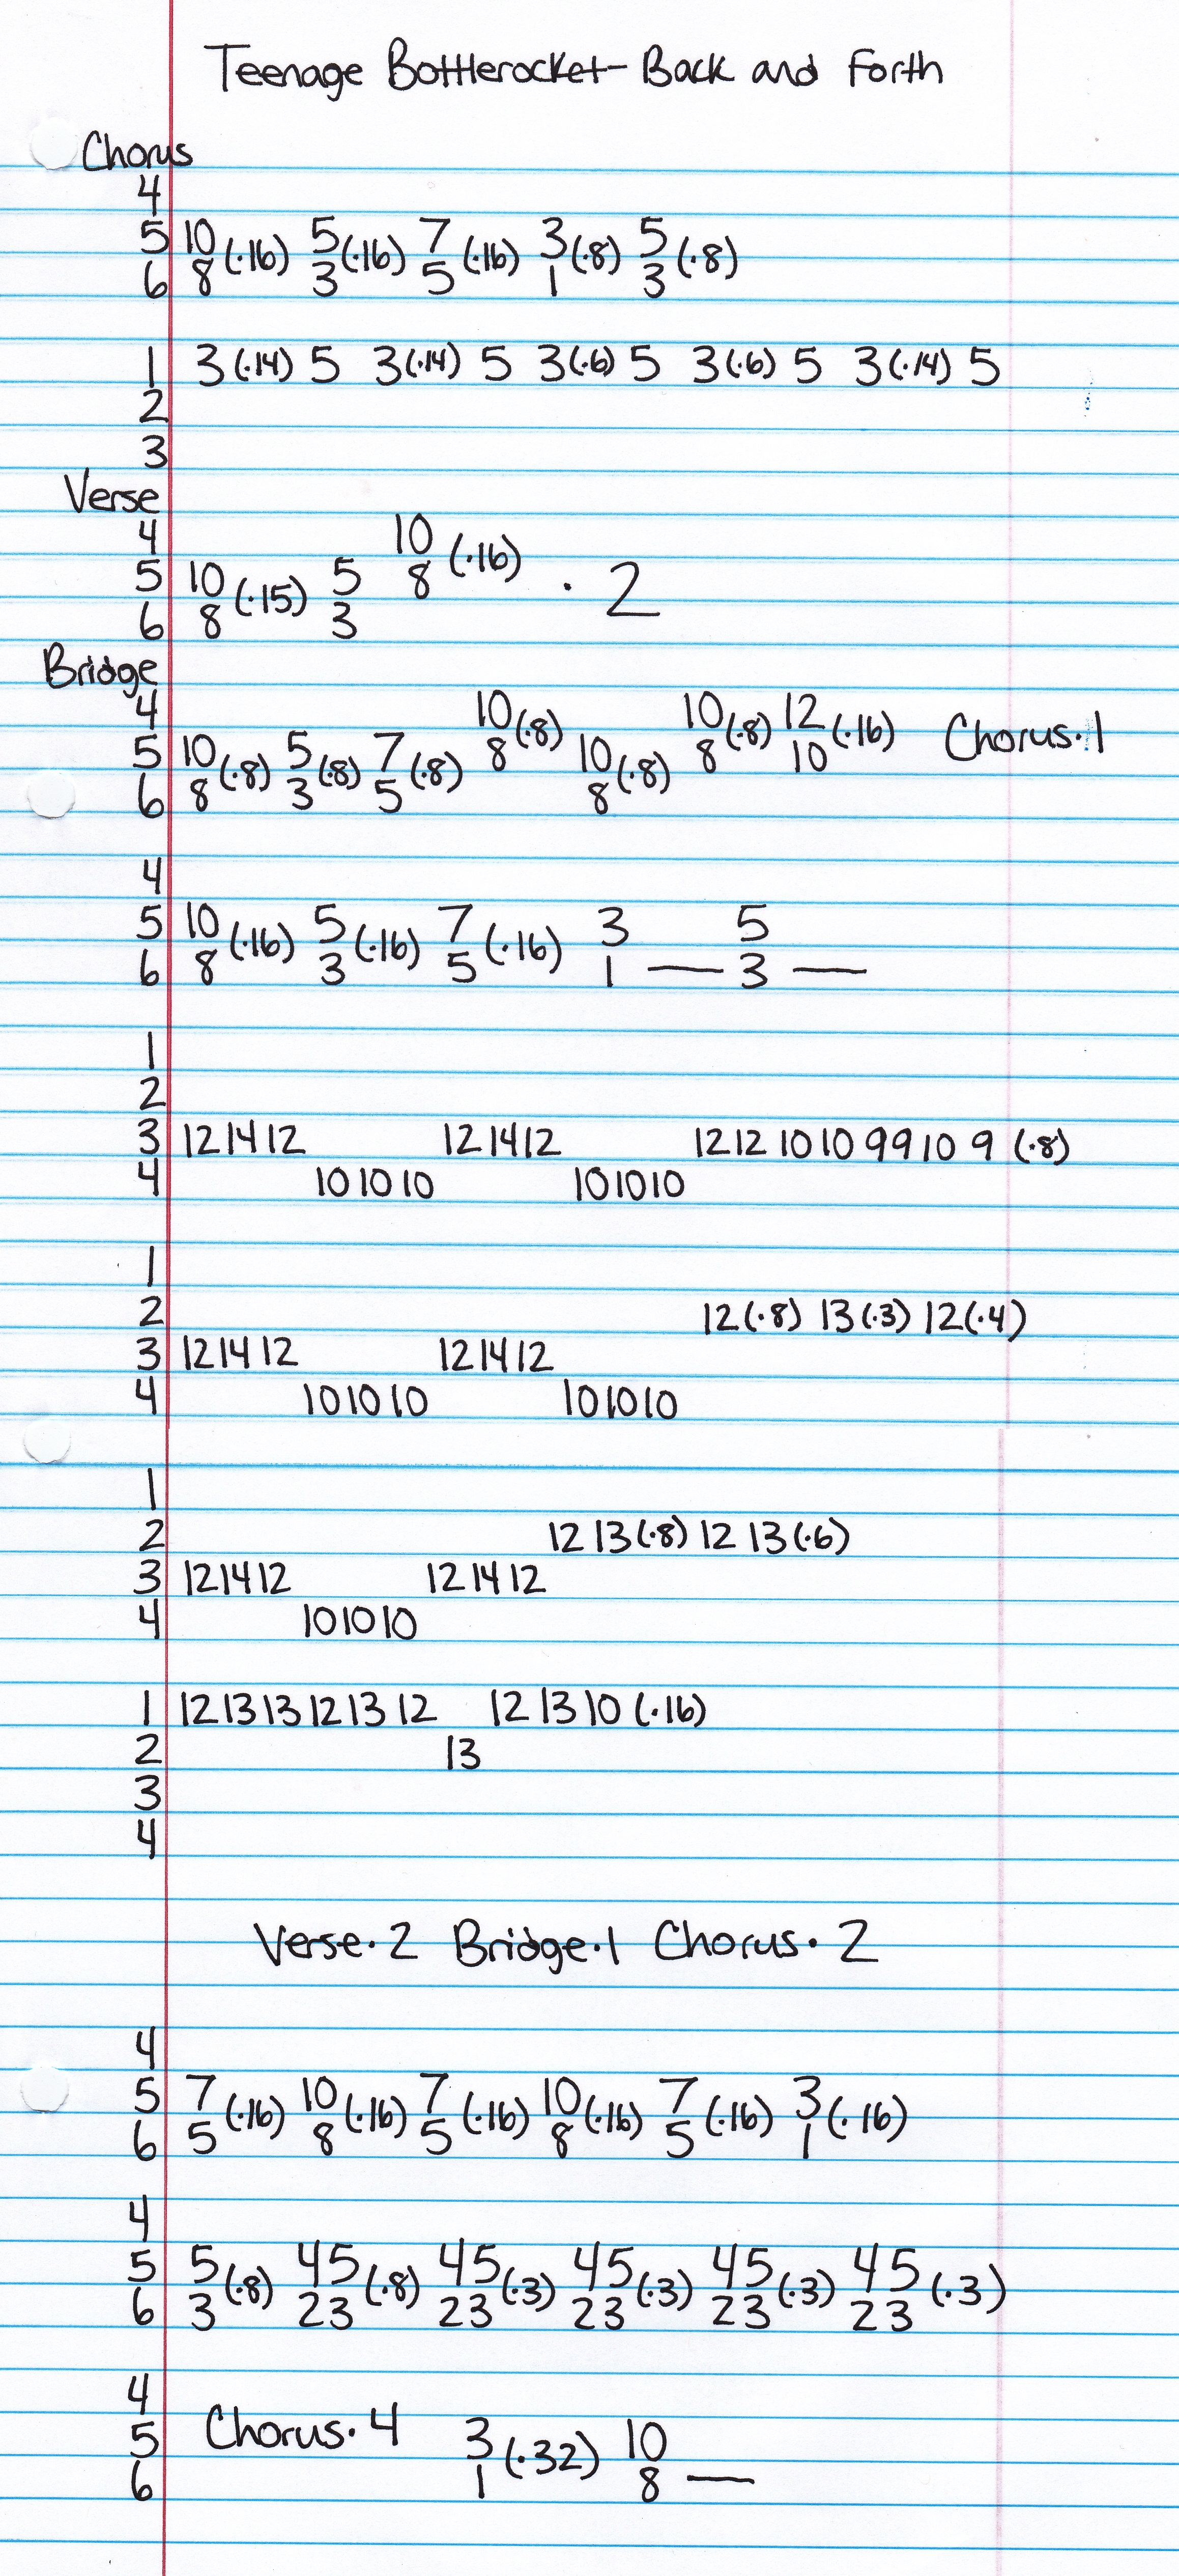 Teenage Bottlerocket - Back and Forth
Chorus
4
5 10 (·16) 5 (·16) 7 (·16) 3 (·8) 5 (·8)
6 8 3 5 1 3
1 3 (·14) 5 3 (·14) 5 3 (·6) 5 3 (·6) 5 3 (·14) 5
2
3
Verse
4 10 (·16)
5 10 (·15) 5 8 · 2
6 8 3
Bridge
4 10 (·8) 10 (·8) 12 (·16) Chorus·1
5 10 (·8) 5 (·8) 7 (·8) 8 10 (·8) 8 10
6 8 3 5 8
4
5 10 (·16) 5 (·16) 7 (·16) 3 5
6 8 3 5 1 — 3 —
1
2
3 12 14 12 12 14 12 12 12 10 10 9 9 10 9 (·8)
4 10 10 10 10 10 10
1
2 12 (·8) 13 (·3) 12 (·4)
3 12 14 12 12 14 12
4 10 10 10 10 10 10
1
2 12 13 (·8) 12 13 (·6)
3 12 14 12 12 14 12
4 10 10 10
1 12 13 13 12 13 12 12 13 10 (·16)
2 13
3
4
Verse·2 Bridge·1 Chorus·2
4
5 7 (·16) 10 (·16) 7 (·16) 10 (·16) 7 (·16) 3 (·16)
6 5 8 5 8 5 1
4
5 5 (·8) 4 5 (·8) 4 5 (·3) 4 5 (·3) 4 5 (·3) 4 5 (·3)
6 3 2 3 2 3 2 3 2 3 2 3
4 Chorus·4
5 3 (·32) 10
6 1 8 —